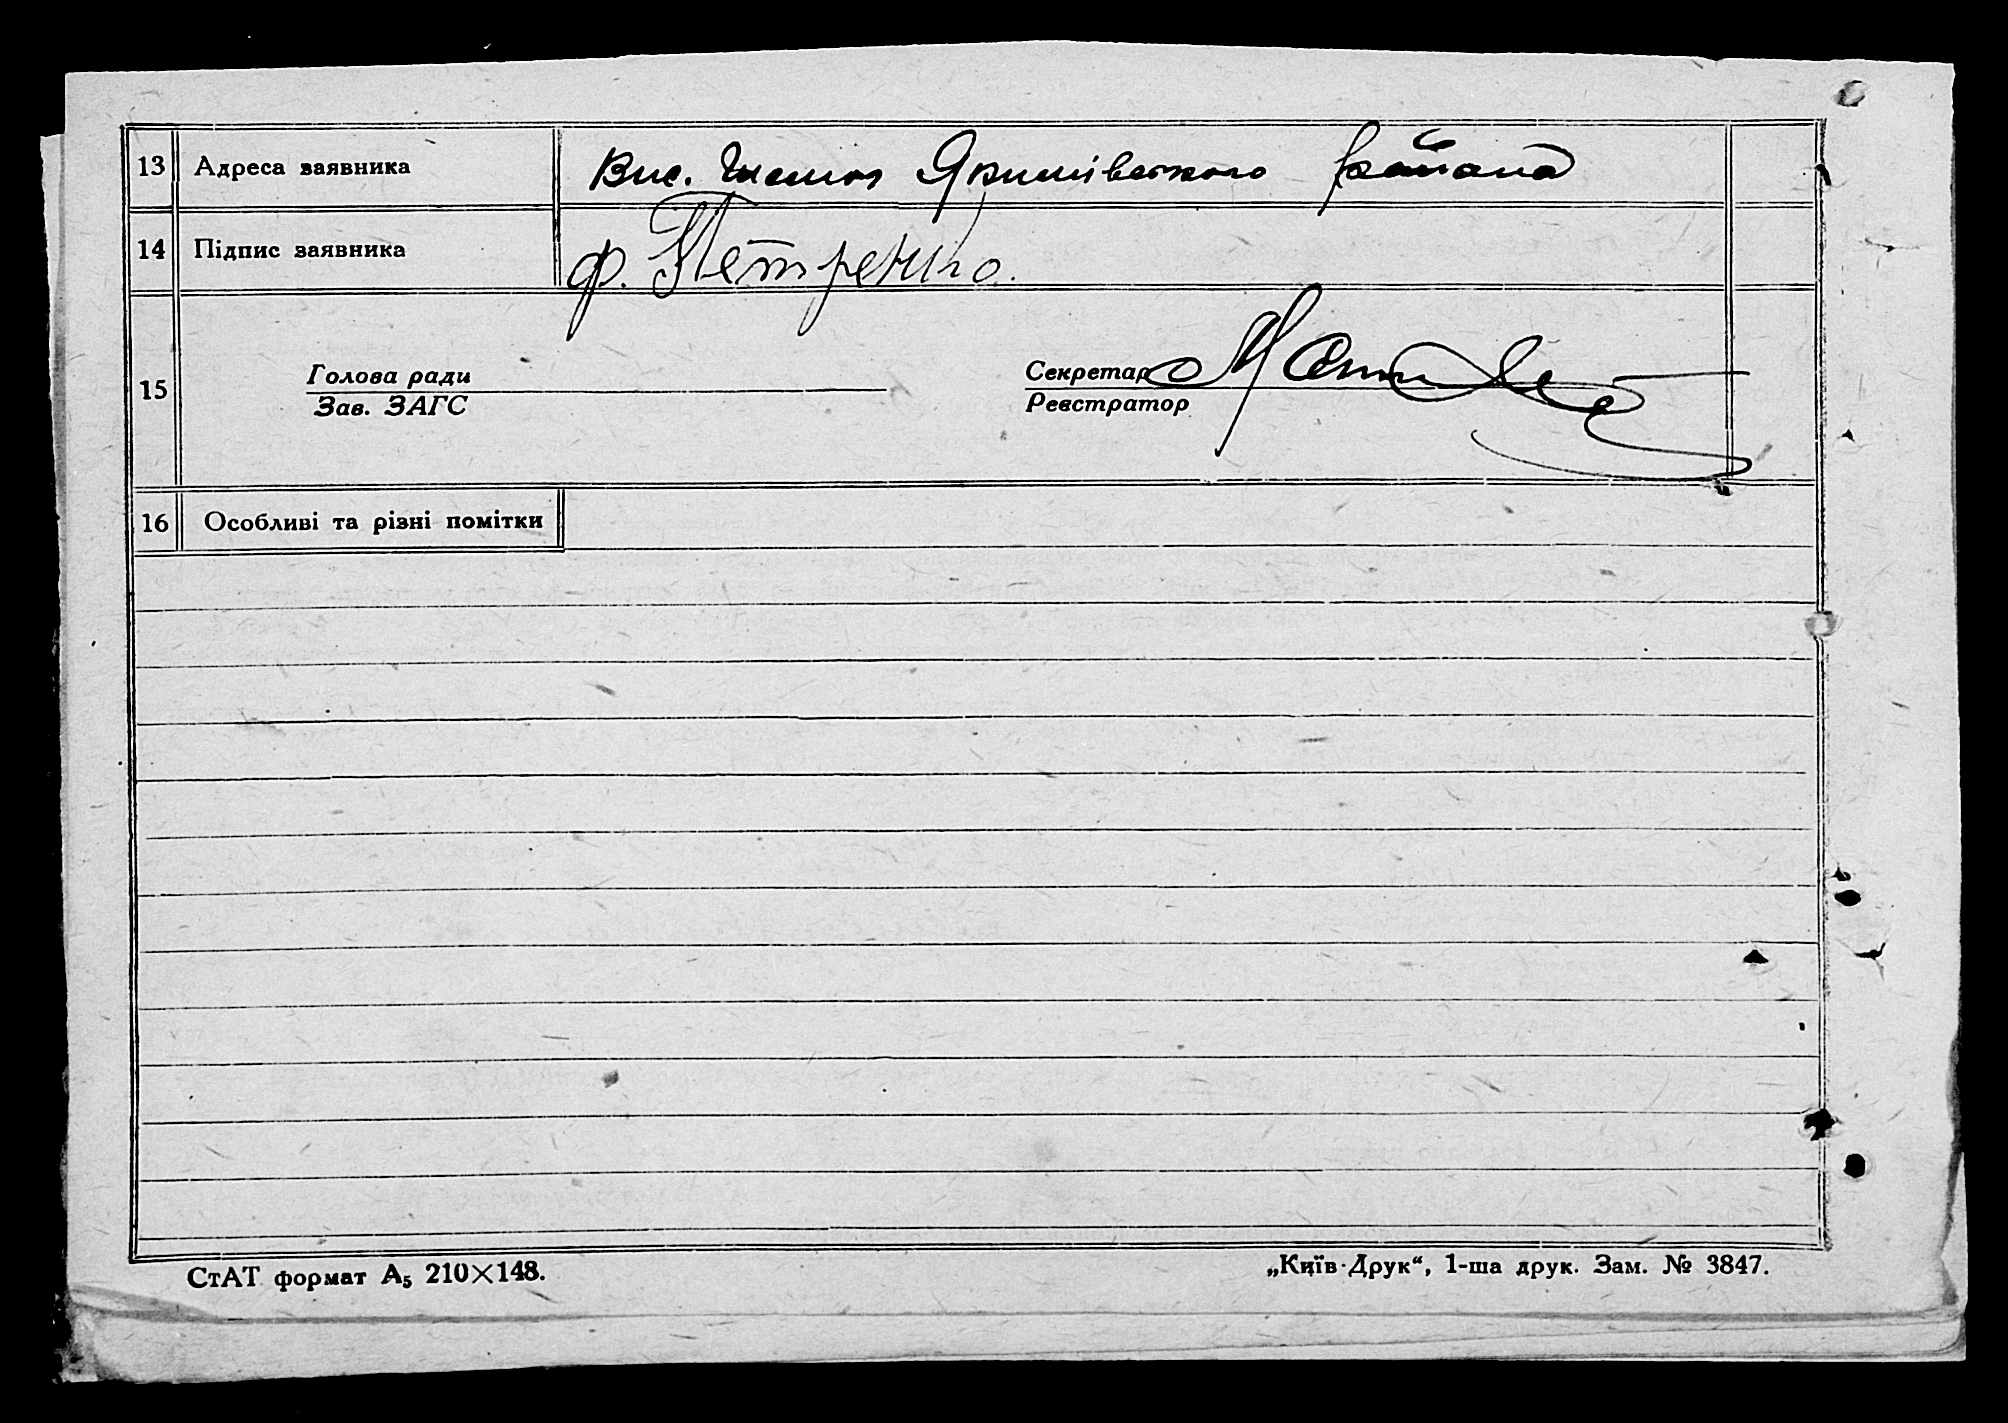 13 Адреса заявника Вис. Яримівского района
14 Підпис заявника Ф. Петренко.
15 Голова ради Секретар
Зав. ЗАГС Реєстратор
16 Особливі та різні помітки
СтАТ формат А₅ 210×148. „Київ-Друк“, 1-ша друк. Зам. № 3847.